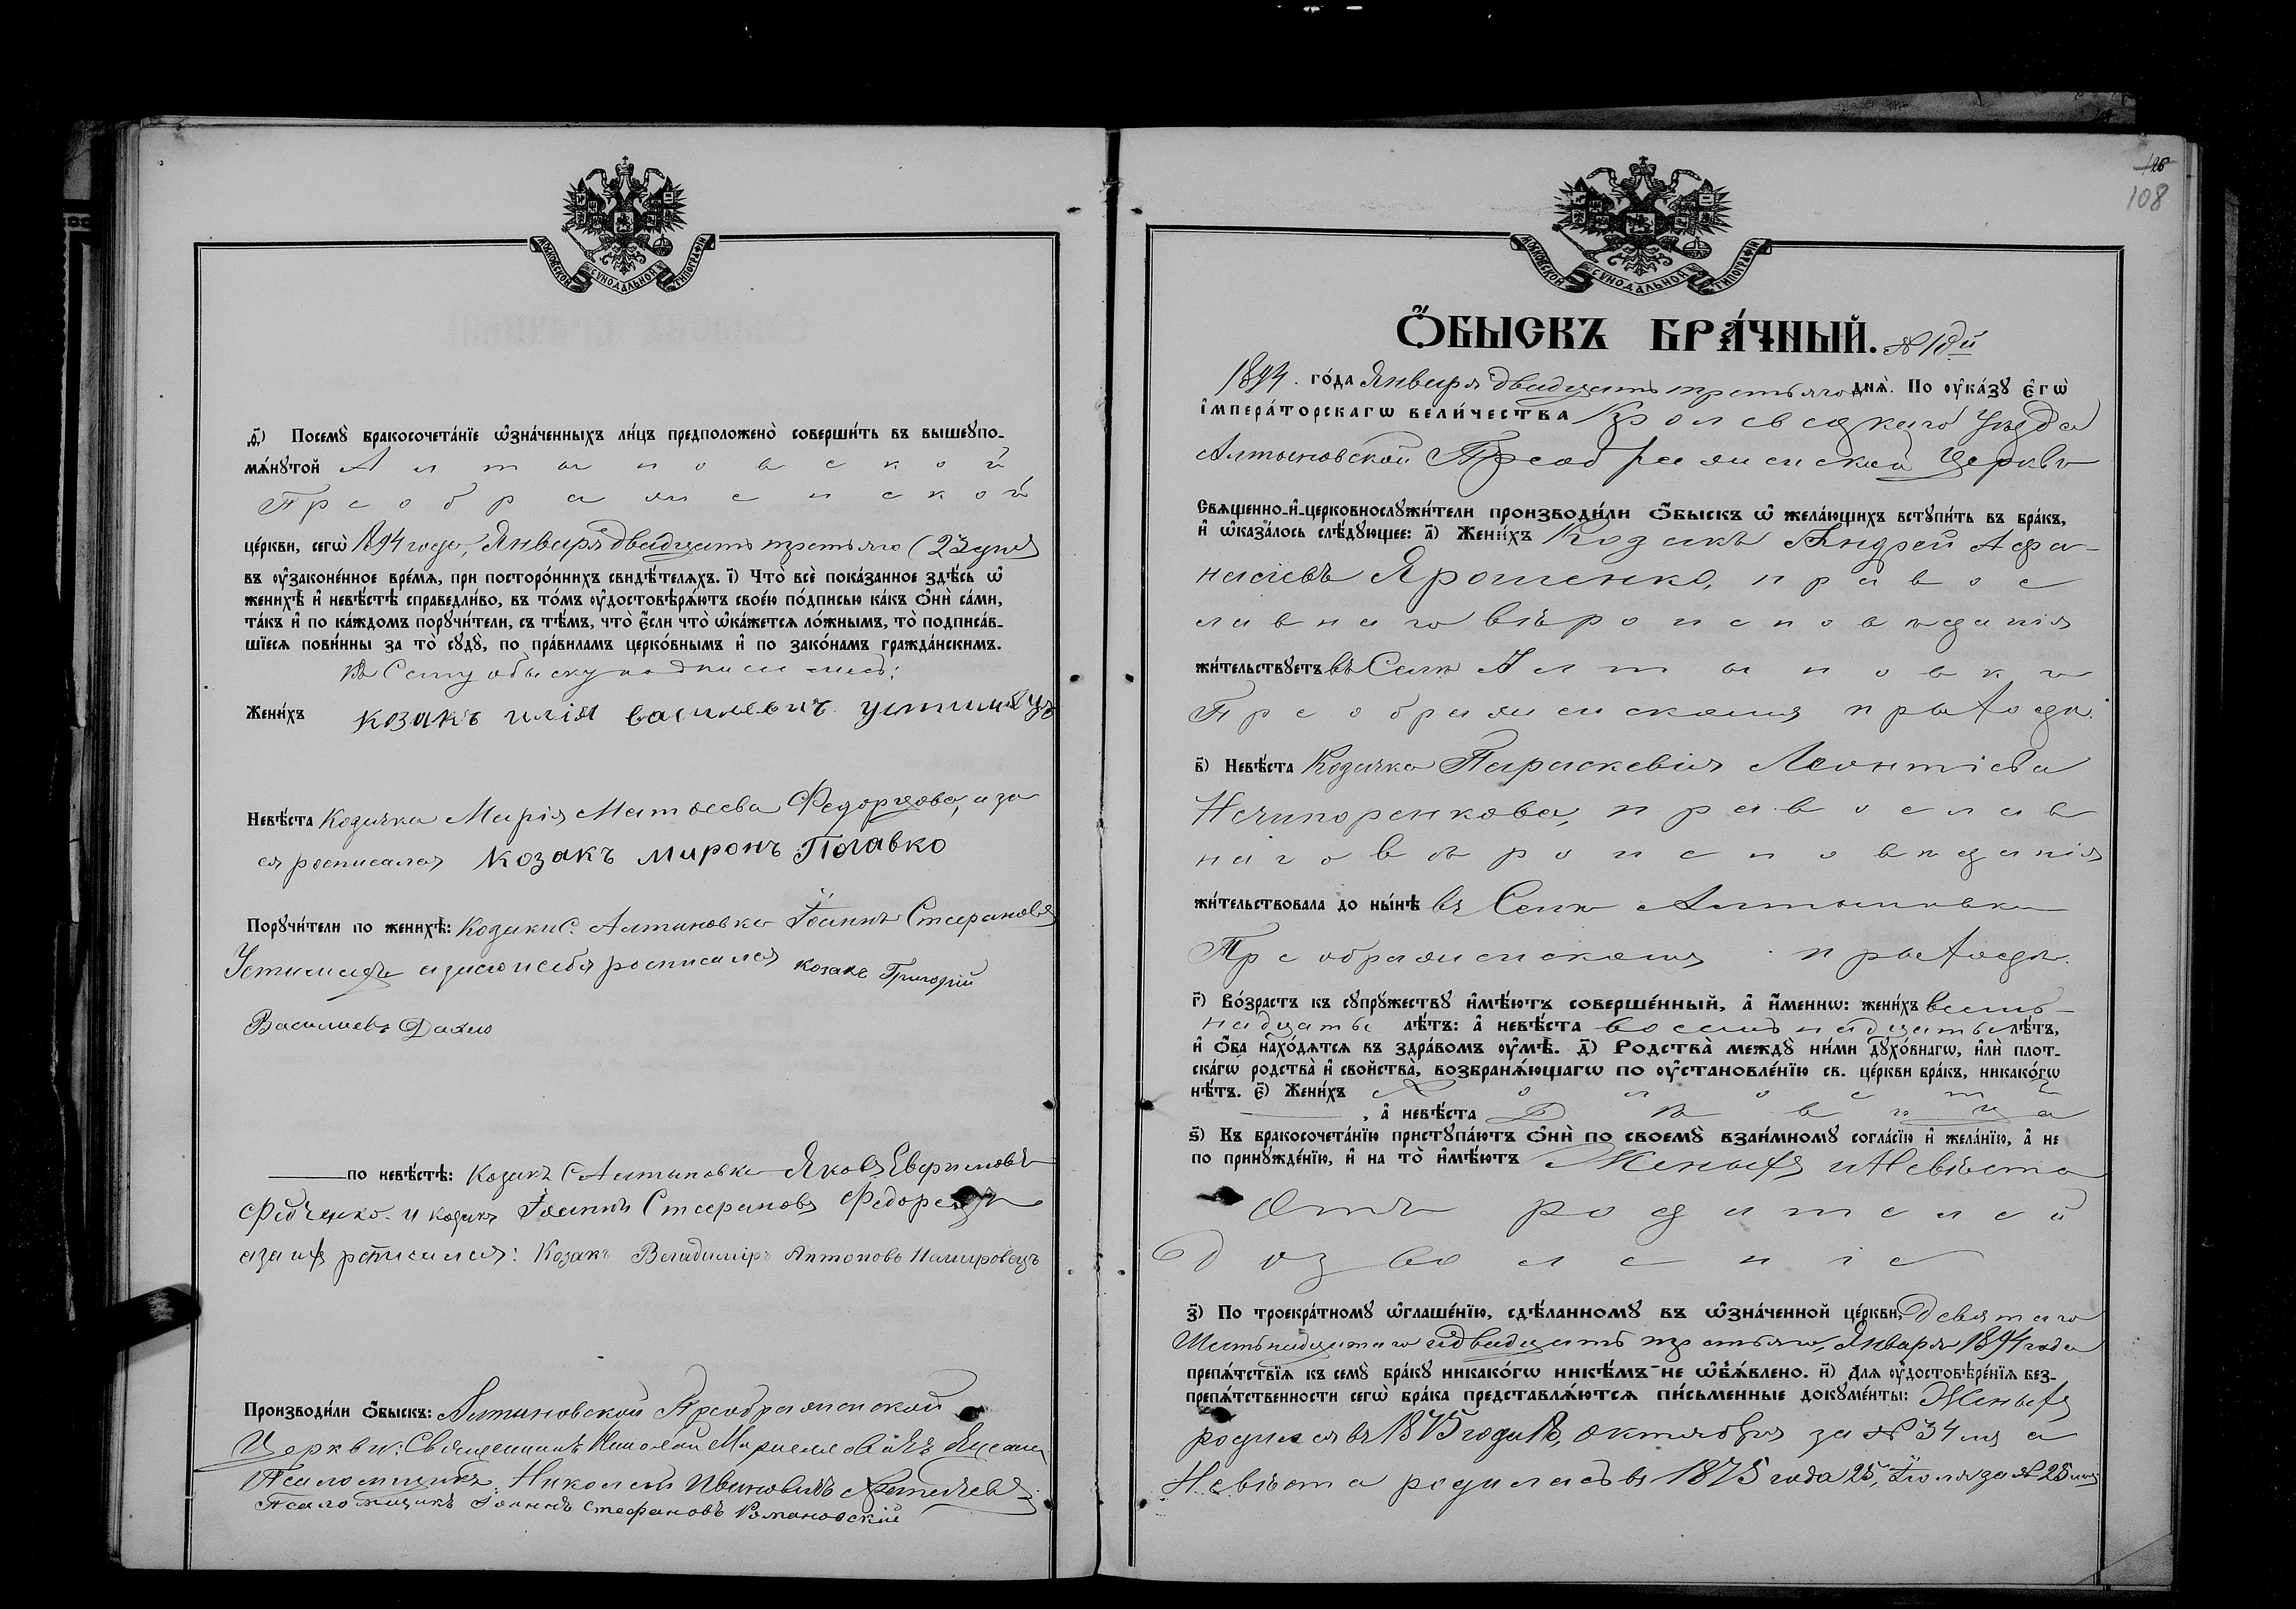 МОСКОВСКОЙ СѴНОДАЛЬНОЙ ТИПОГРАФІИ
д҃) Посемꙋ̀ бракосочета́нїе ѡ҆зна́ченныхъ ли́цъ предположено̀ соверши́ть въ вышеꙋпо-
мѧ́нꙋтой Алтыновской
Преображенской
це́ркви, сегѡ̀ 1894 года, Января двадцать третьяго (23 дня)
въ ᲂу҆законе́нное вре́мѧ, при посторо́ннихъ свидѣ́телѧхъ. і҃) Что̀ всѐ пока́занное здѣ́сь ѡ҆
женихѣ̀ и҆ невѣ́стѣ справедли́во, въ то́мъ ᲂу҆достовѣрѧ́ютъ свое́ю по́дписью ка́къ ѻ҆нѝ са́ми,
та́къ и҆ по ка́ждомъ порꙋчи́тели, съ тѣ́мъ, что̀ є҆́сли что̀ ѡ҆ка́жетсѧ ло́жнымъ, то̀ подписа́в-
шїесѧ пови́нны за то̀ сꙋдꙋ̀, по пра́виламъ церко́внымъ и҆ по зако́намъ гражда́нскимъ.
Къ Сему обыску подписались:
Жени́хъ козакъ илія василевич устимецъ
Невѣ́ста Козачка Марія Матѳеева Федорцова, а за
ея росписался козакъ миронъ Полавко
Порꙋчи́тели по женихѣ̀: Козаки с. Алтыновка Іоаннъ Стефановъ
Устимецъ а за него и себя росписался козакъ Григорій
Васильевъ Дахно
по невѣ́стѣ: Козакъ с Алтыновка Яковъ Евфимовъ
Федченко. и козакъ Іоаннъ Стефановъ Федорецъ
а за их росписался: Козакъ Владиміръ Антоновъ
Производи́ли ѻ҆́быскъ: Алтыновской Преображенской
Церкви: Священникъ Николай
Псаломщикъ Николай Ивановичъ
Псаломщикъ Іоаннъ Стефановъ Романовскій
108
МОСКОВСКОЙ СѴНОДАЛЬНОЙ ТИПОГРАФІИ
Ѻ҆́БЫСКЪ БРА́ЧНЫЙ. № 10й
1894. го́да Января двадцать третьяго днѧ̀. По ᲂу҆ка́зꙋ є҆гѡ̀
і҆мпера́торскагѡ вели́чества Кролевецкаго Уезда
Алтыновской Преображенской Церкви
Свѧщенно-и҆-церковнослꙋжи́тели производи́ли ѻ҆́быскъ ѡ҆ жела́ющихъ встꙋпи́ть въ бра́къ,
и҆ ѡ҆каза́лось слѣ́дꙋющее: а҃) Жени́хъ Козакъ Андрей Афа-
насіевъ Ярошенко, правос
лавнаго вѣроисповѣданія
жи́тельствꙋетъ въ Селѣ Алтыновки
Преображенскаго прихода.
в҃) Невѣ́ста Козачка Параскевія Леонтіева
Нечипоренкова, православ
наго вѣроисповѣданія
жи́тельствовала до ны́нѣ въ Селѣ Алтыновки
Преображенскаго прихода.
г҃) Во́зрастъ къ сꙋпрꙋ́жествꙋ и҆мѣ́ютъ соверше́нный, а҆ и҆́меннѡ: жени́хъ восемь-
надцать лѣ́тъ: а҆ невѣ́ста восемьнадцать лѣ́тъ,
и҆ ѻ҆́ба нахо́дѧтсѧ въ здра́вомъ ᲂу҆мѣ̀. д҃) Родства̀ междꙋ̀ ни́ми дꙋхо́внагѡ, и҆лѝ плот-
ска́гѡ родства̀ и҆ свойства̀, возбранѧ́ющагѡ по ᲂу҆становле́нїю св. це́ркви бра́къ, никако́гѡ
нѣ́тъ. є҃) Жени́хъ Холостъ
, а҆ невѣ́ста Дѣвица
ѕ҃) Къ бракосочета́нїю пристꙋпа́ютъ ѻ҆нѝ по своемꙋ̀ взаи́мномꙋ согла́сїю и҆ жела́нїю, а҆ не
по принꙋжде́нїю, и҆ на то̀ и҆мѣ́ютъ Женихъ и Невѣста
Отъ родителей
дозволеніе
з҃) По троекра́тномꙋ ѡ҆глаше́нїю, сдѣ́ланномꙋ въ ѡ҆зна́ченной це́ркви, Девятаго
Шестьнадцатаго и двадцать третьяго, Января 1894 года
препѧ́тствїѧ къ семꙋ̀ бра́кꙋ никако́гѡ никѣ́мъ не ѡ҆б̾ѧ́влено. и҃) Длѧ ᲂу҆достовѣре́нїѧ без-
препѧ́тственности сегѡ̀ бра́ка представлѧ́ютсѧ пи́сьменные докꙋме́нты: Женихъ
родился въ 1875 года 18, Октября за № 34 мъ а
Невѣста родилась въ 1875 года 25, Іюля за № 25 мъ